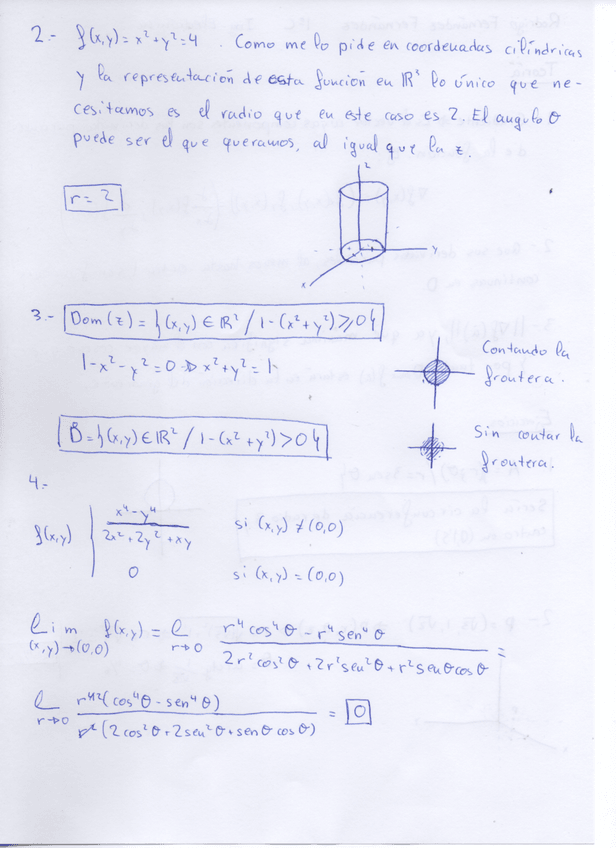 2.- f(x,y) = x²+y²=4 . Como me lo pide en coordenadas cilíndricas
y la representación de esta función en ℝ² lo único que ne-
cesitamos es el radio que en este caso es 2. El angulo θ
puede ser el que queramos, al igual que la z.
r = 2
z
y
x
3.- Dom(z) = {(x,y) ∈ ℝ² / 1-(x²+y²) ≥ 0}
1-x²-y² = 0 → x²+y² = 1
Contando la
frontera.
B = {(x,y) ∈ ℝ² / 1-(x²+y²) > 0}
Sin contar la
frontera.
4.-
f(x,y) | x⁴-y⁴ / 2x²+2y²+xy si (x,y) ≠ (0,0)
0 si (x,y) = (0,0)
lim (x,y)→(0,0) f(x,y) = l r→0 r⁴cos⁴θ - r⁴sen⁴θ / 2r²cos²θ + 2r²sen²θ + r²senθcosθ =
l r→0 r⁴²(cos⁴θ - sen⁴θ) / r²(2cos²θ + 2sen²θ + senθ cosθ) = 0